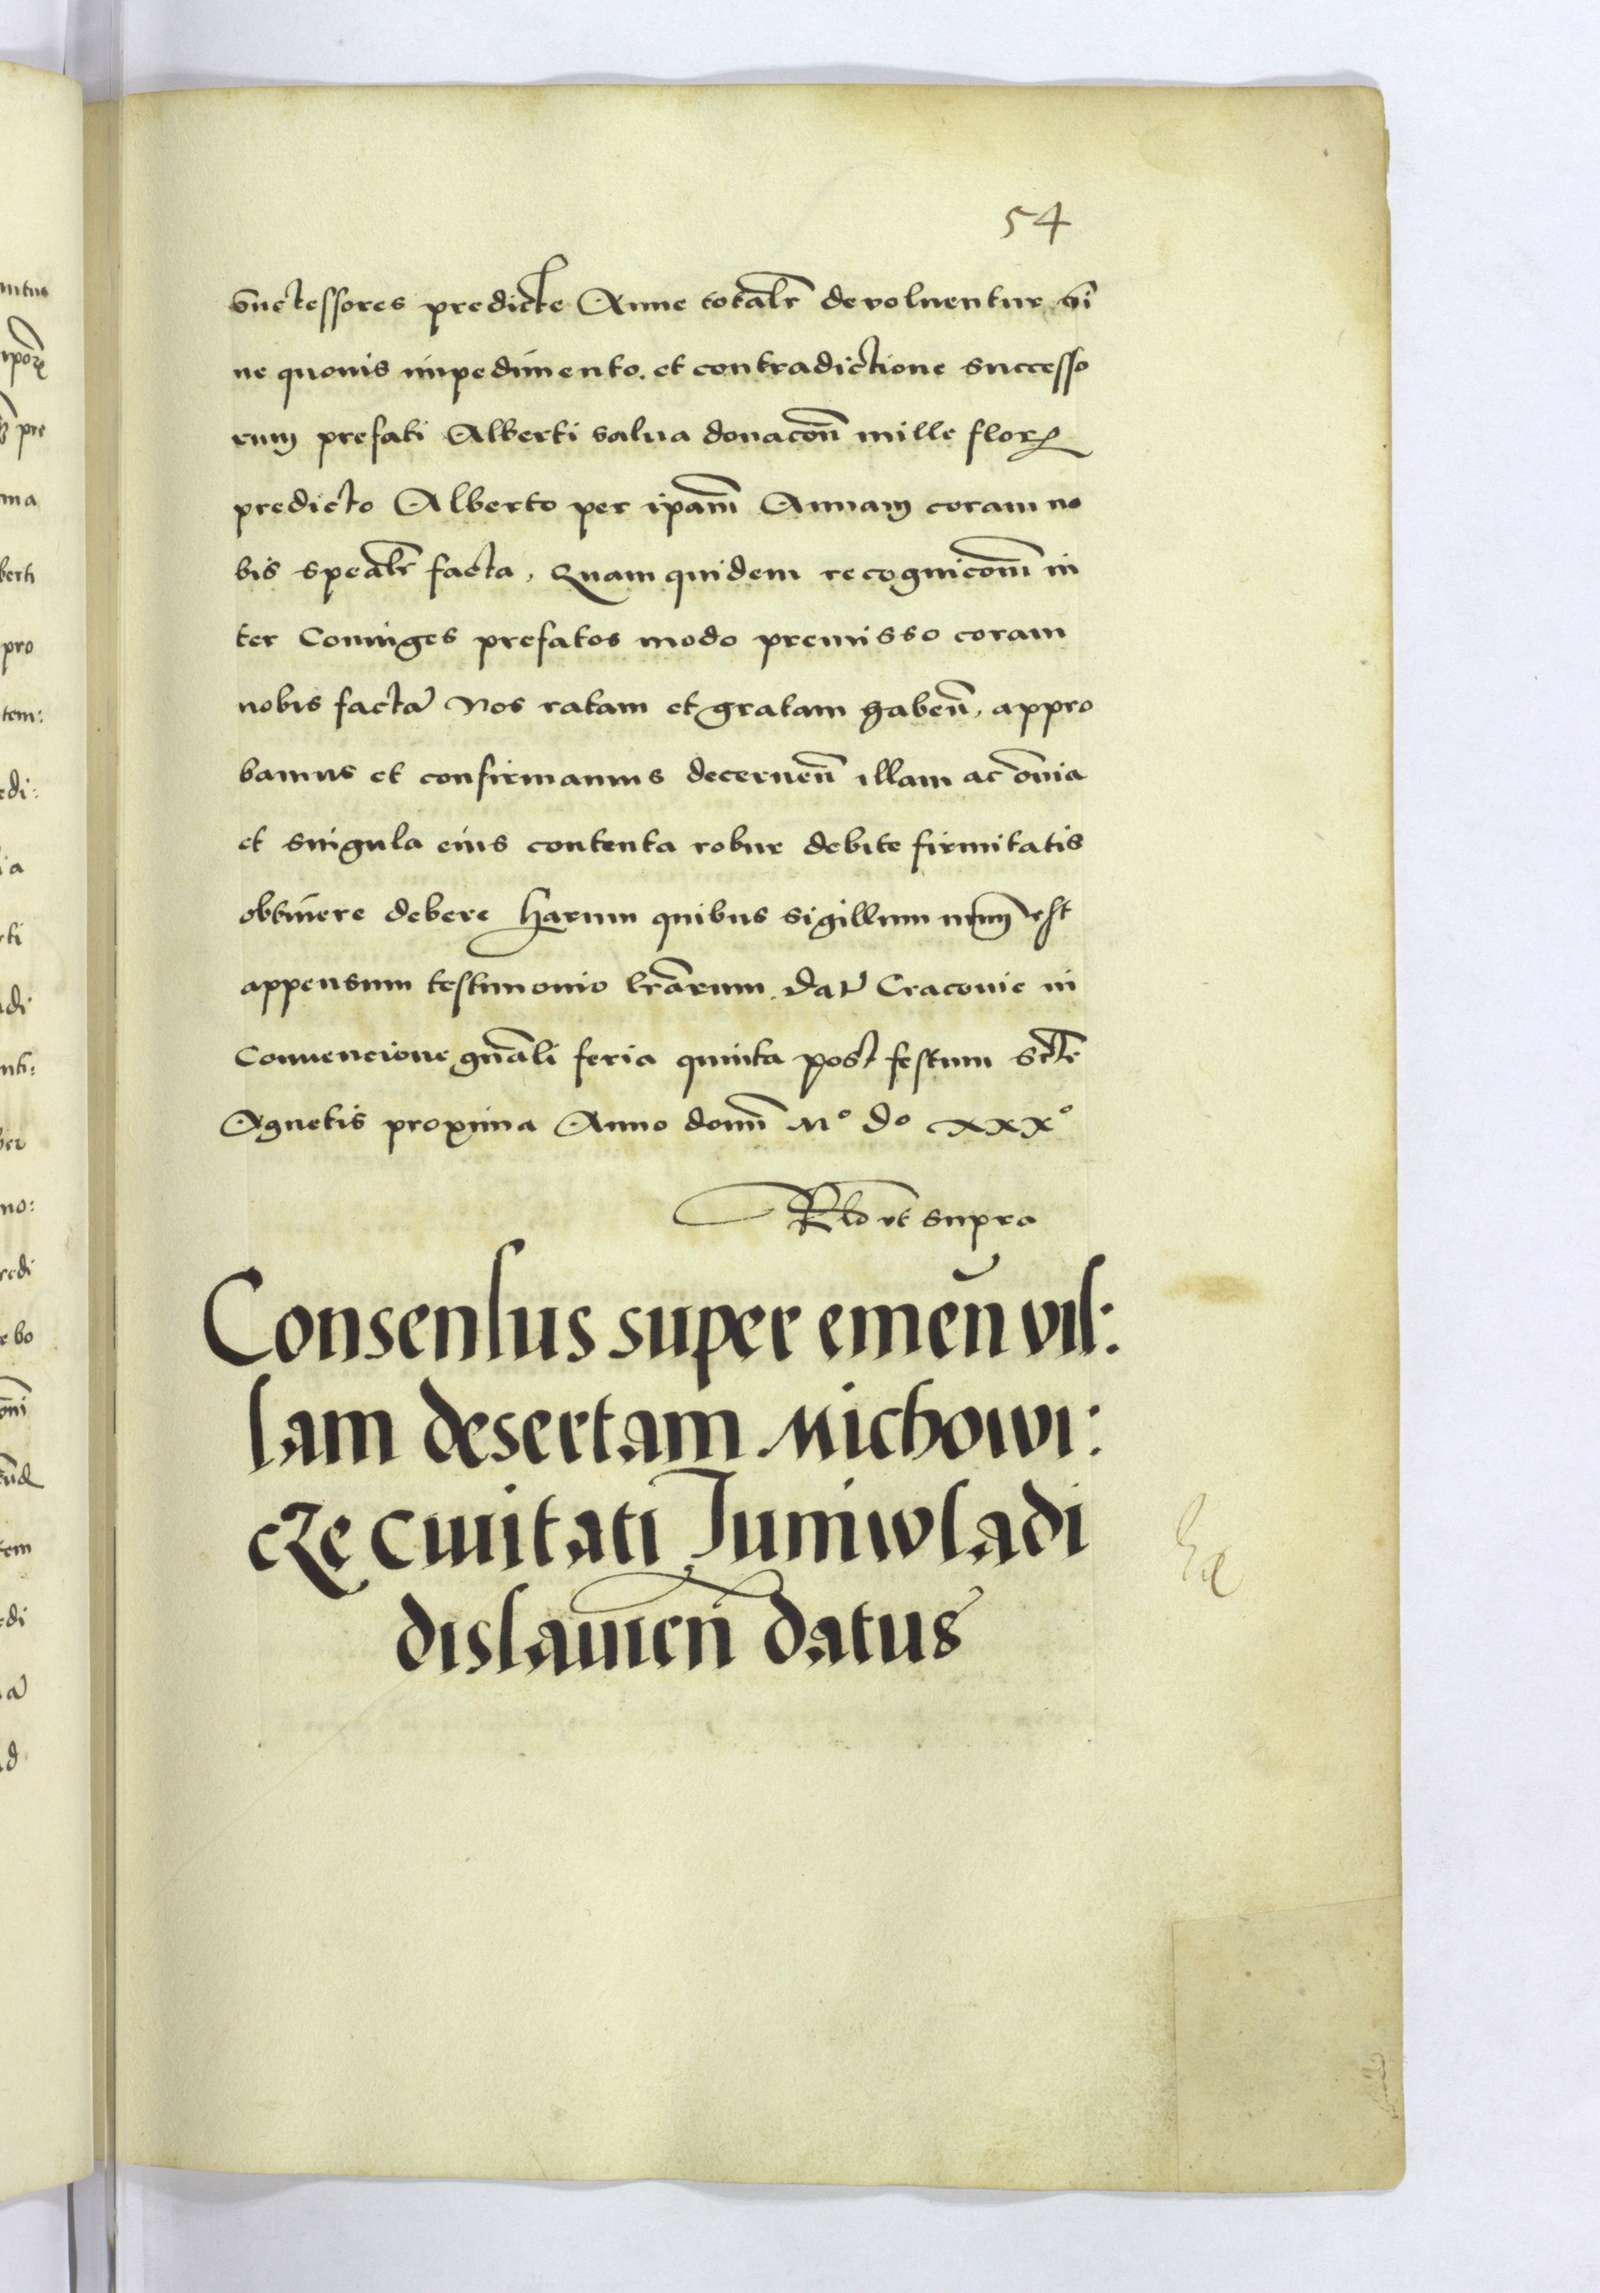 54
Suctessores predicte Anne totalr̄ devoluentur, si
ne quouis impedimento. et contradictione successo
rum prefati Alberti salua donacōn̄ mille florꝝ
predicto Alberto per ip̄am Annam coram no
bis sp̄ealr̄ facta, Quam quidem recognicōm̄ in
ter Coniuges prefatos modo premisso coram
nobis factā Nos ratam et gratam haben̄, appro
bamus et confirmamus decernen̄ illam ac om̄ia
et singula eius contenta robur debite firmitatis
obtinere debere Harum quibus sigillum nrm̄ est
appensum testimonio lr̄arum. Dat̄ Cracouie in
Conuencione gn̄ali feria quinta post festum Scte̅
Agnetis proxima Anno domī Mº dº xxxº
Rlo vt supra
Consensus super emen̄ vil:
lam desertam Michowi:
cze ciuitati Juniwladi
dislauien̄ datus